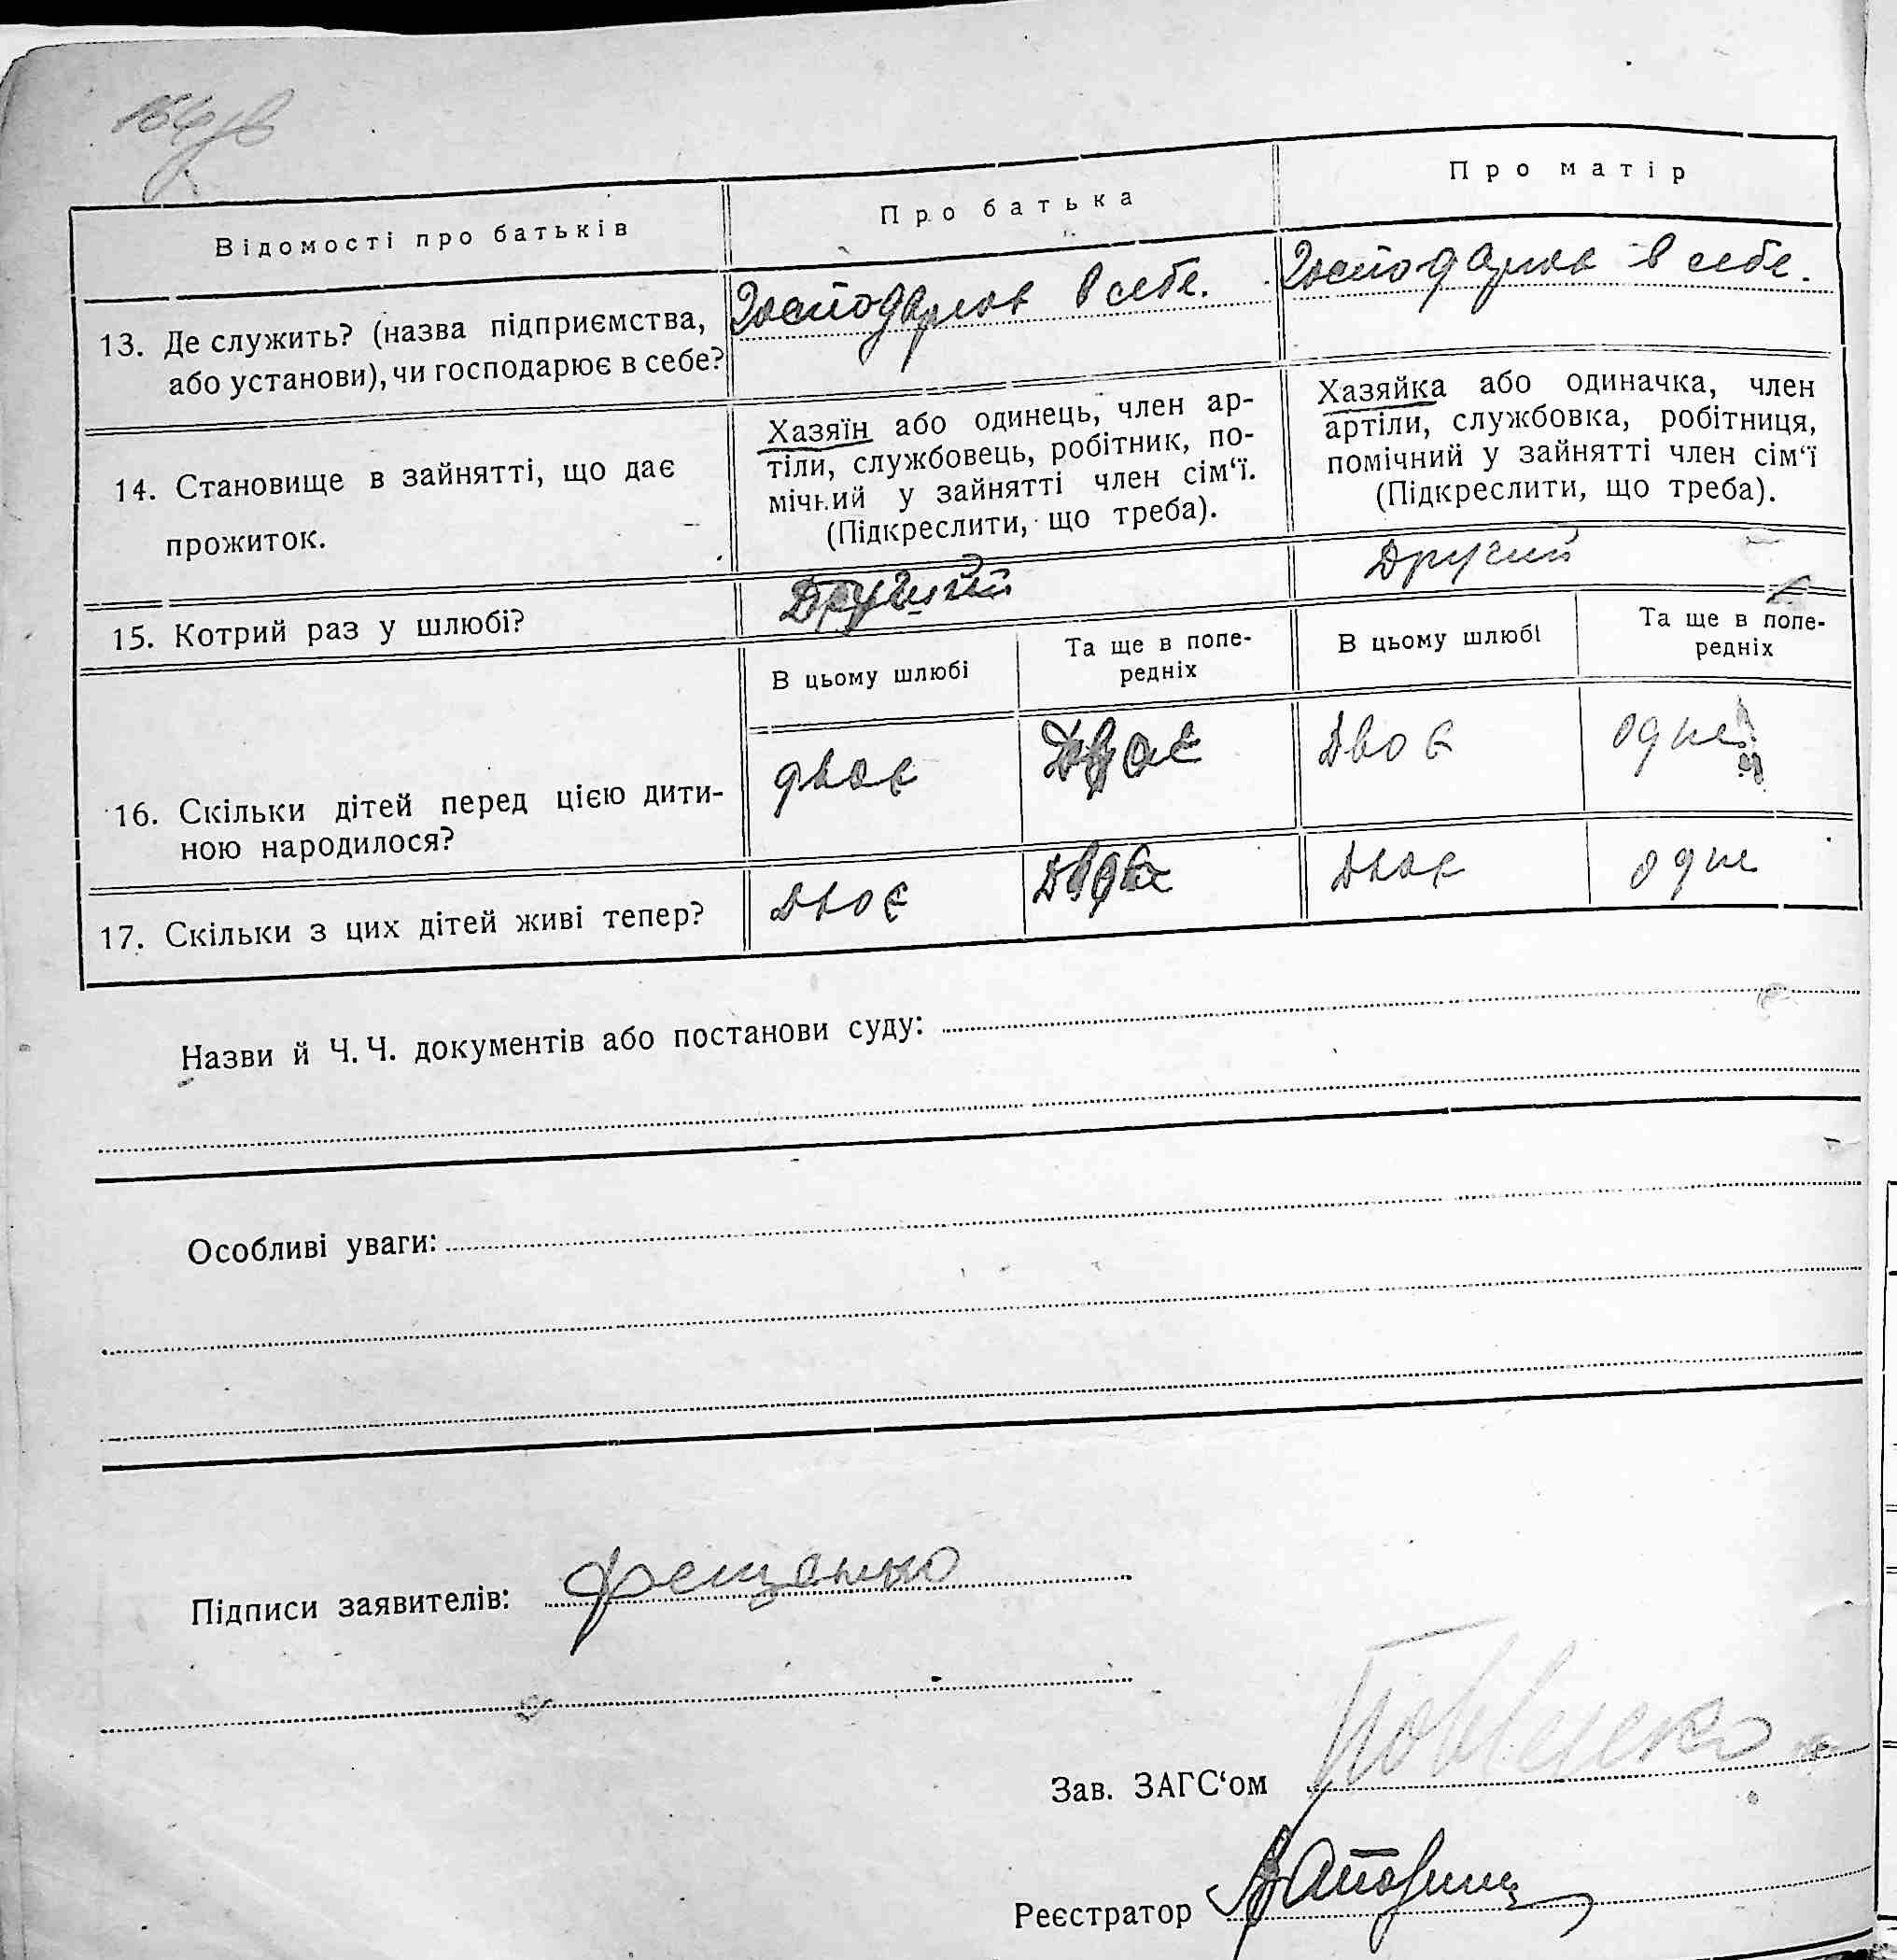 Відомості про батьків
Про батька
Про матір
13. Де служить? (назва підприємства,
або установи), чи господарює в себе?
Господарює в себе.
Господарює в себе.
14. Становище в зайнятті, що дає
прожиток.
Хазяїн або одинець, член ар-
тіли, службовець, робітник, по-
мічний у зайнятті член сім‘ї.
(Підкреслити, що треба).
Хазяйка або одиначка, член
артіли, службовка, робітниця,
помічний у зайнятті член сім‘ї
(Підкреслити, що треба).
15. Котрий раз у шлюбі?
Другий
Другий
В цьому шлюбі
Та ще в попе-
редніх
В цьому шлюбі
Та ще в попе-
редніх
16. Скільки дітей перед цією дити-
ною народилося?
двоє
Двоє
Двоє
одне
17. Скільки з цих дітей живі тепер?
Двоє
Двоє
Двоє
одне
Назви й Ч. Ч. документів або постанови суду:
Особливі уваги:
Підписи заявителів: Фещенко
Зав. ЗАГС‘ом
Реєстратор